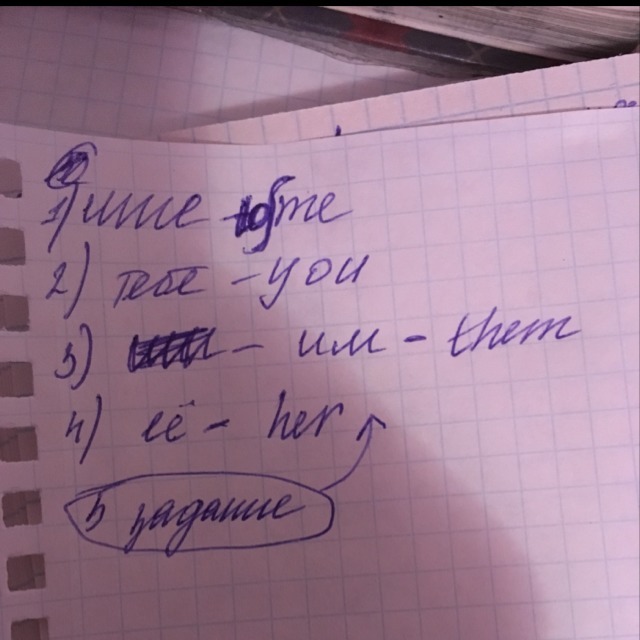 1) мне - me
2) тебе - you
3) - им - them
4) её - her
5 задание